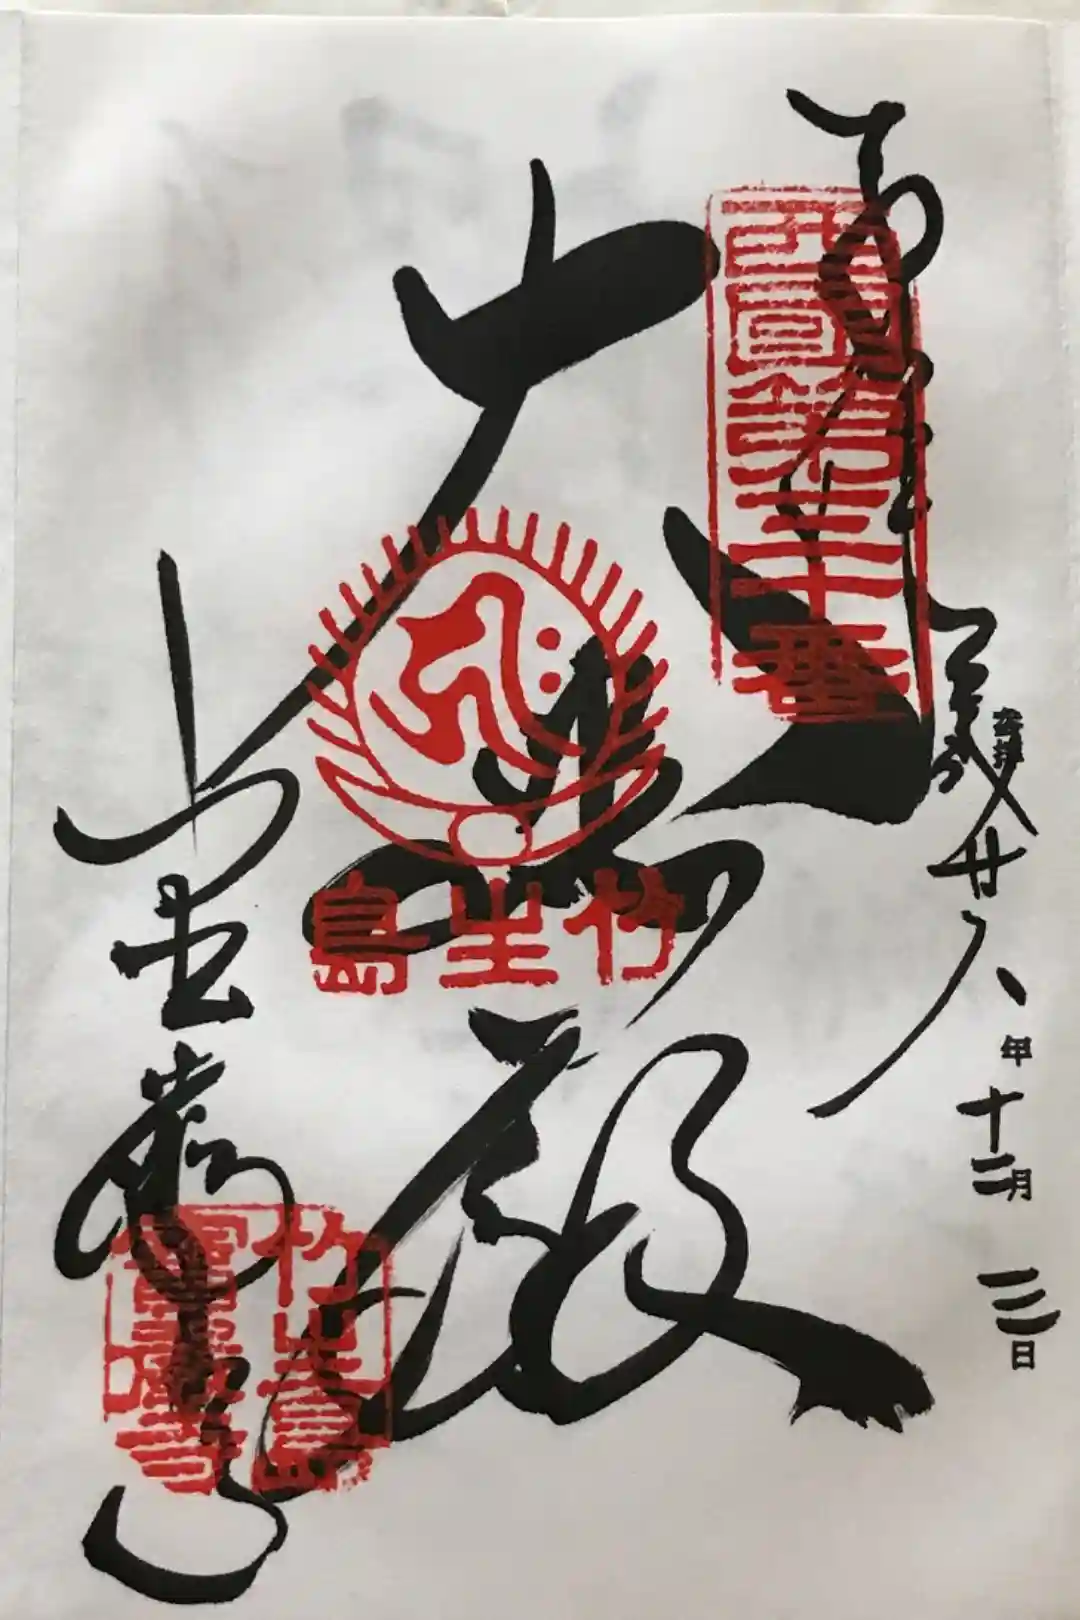 奉拝
平成廿八年十二月三日
西国第三十番
大悲殿
竹生島
宝厳寺
竹生島
寶厳寺